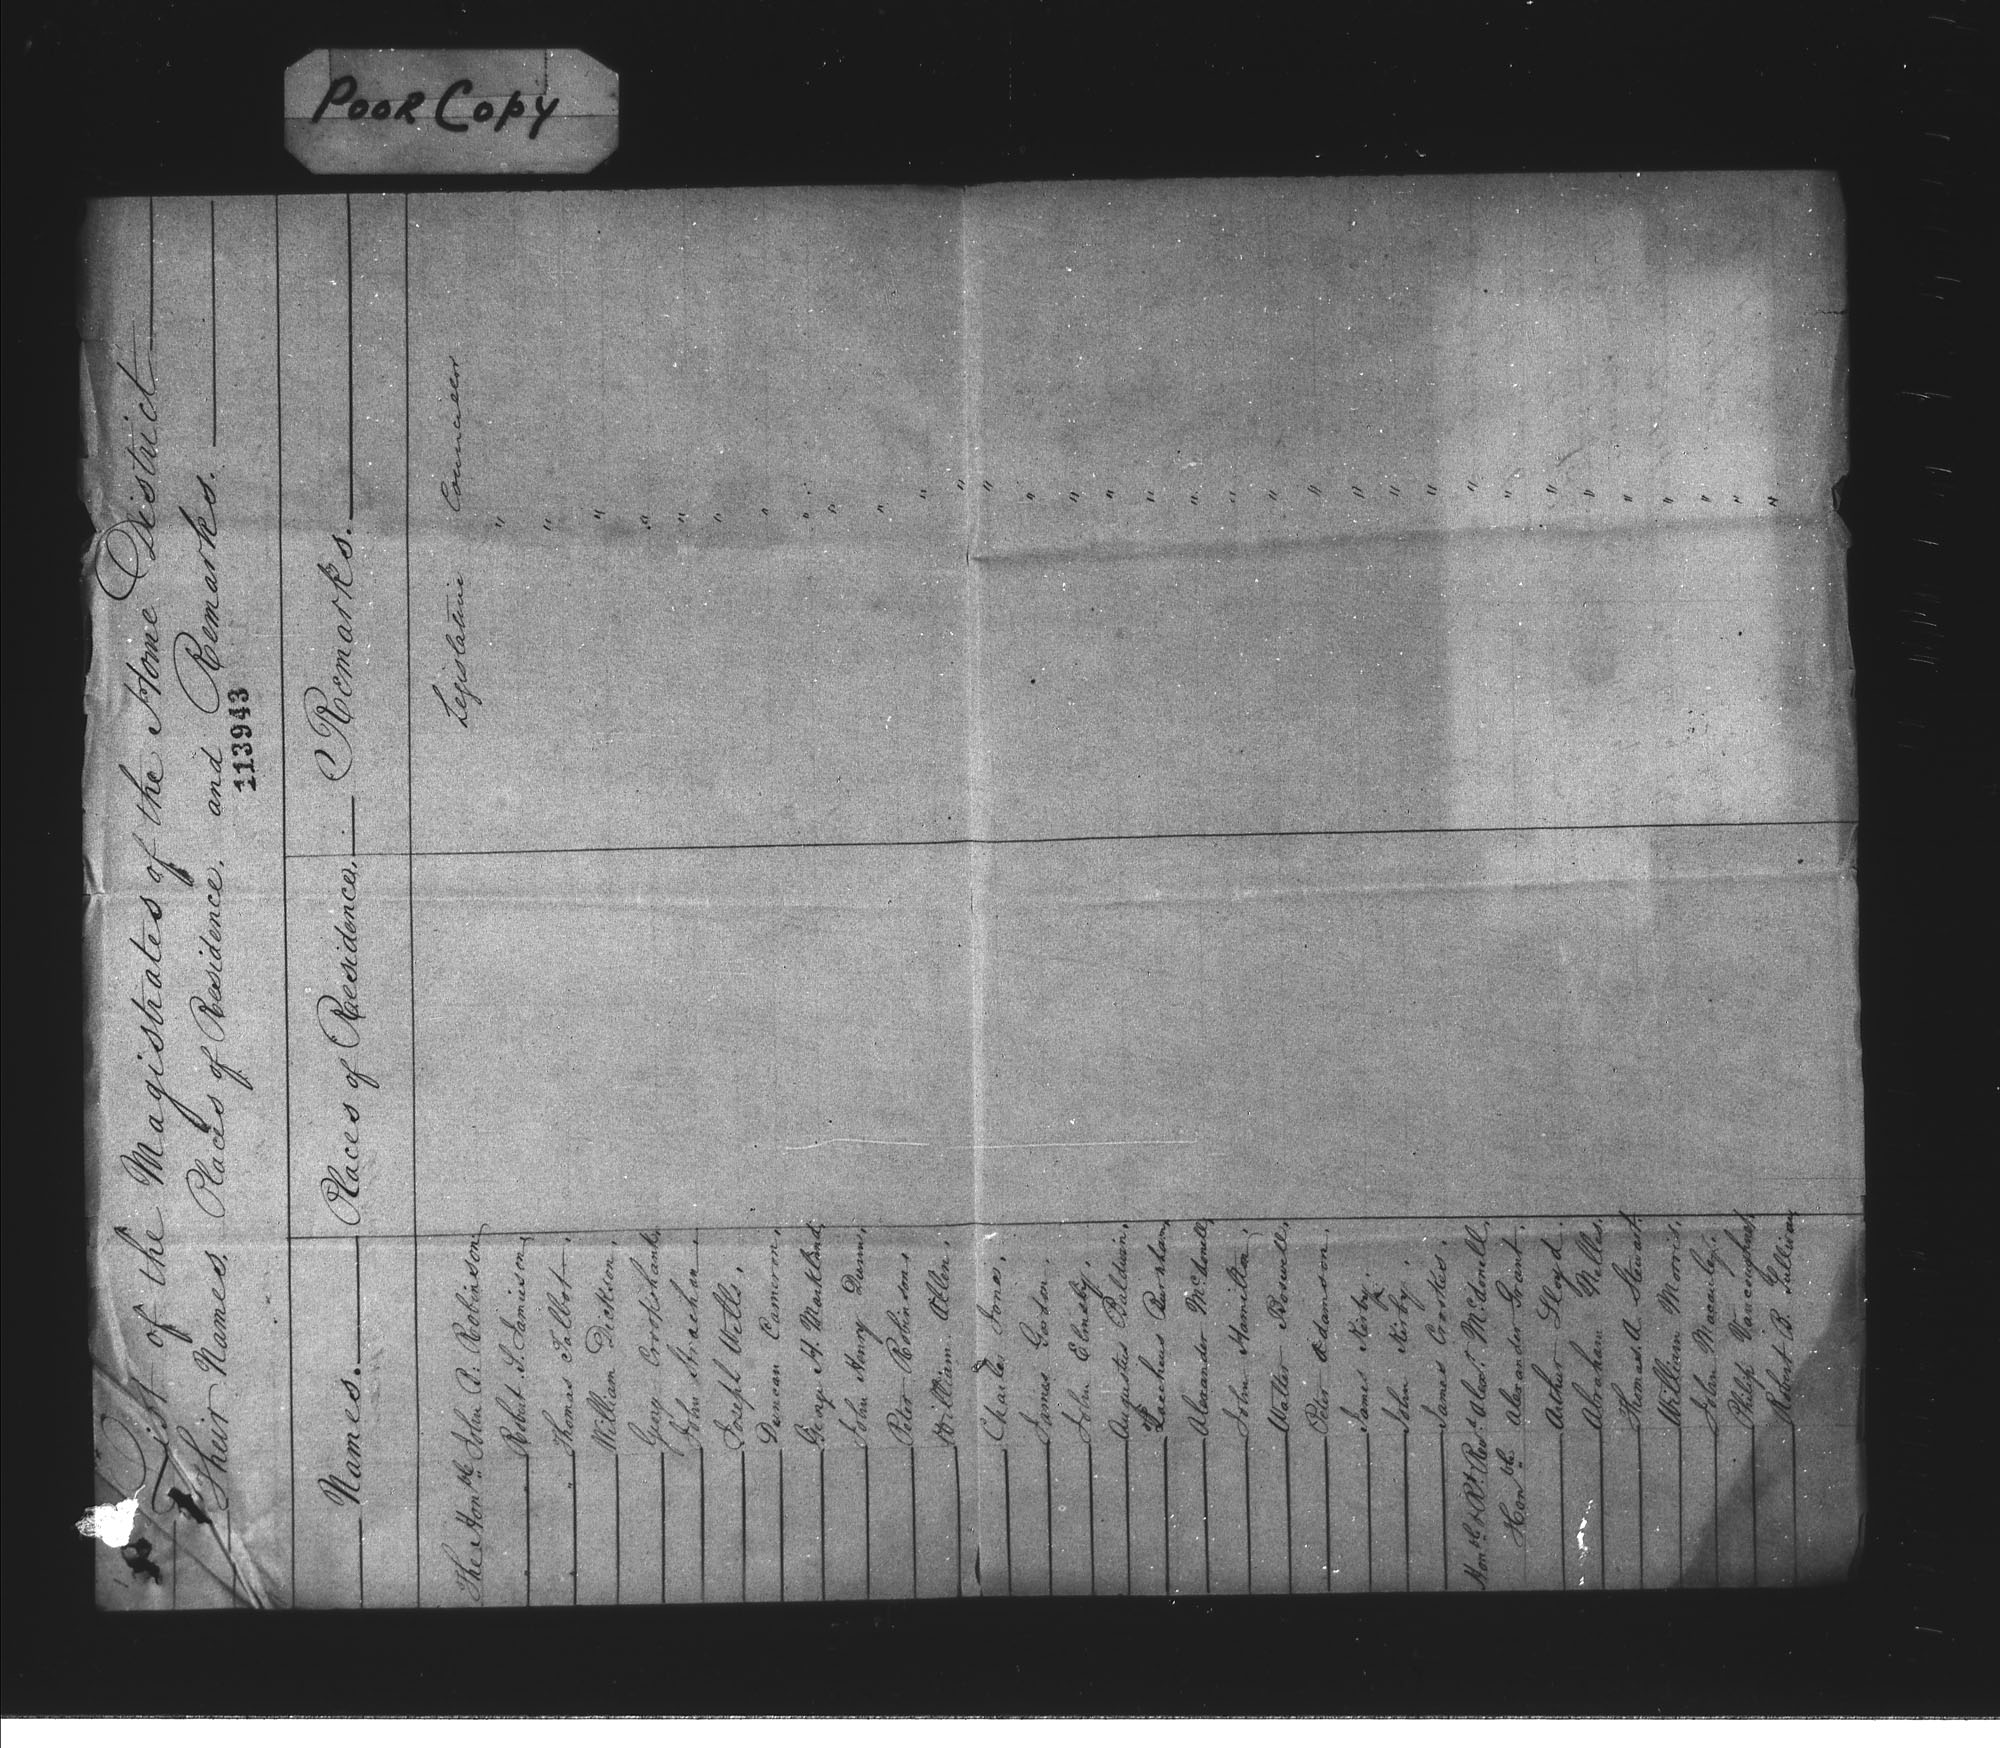 Poor Copy
List of the Magistrates of the Home District
Their Names. Places of Residence, and Remarks.
113943
Names. Places of Residence. Remarks.
The Honble John B. Robinson Legislative Councillor
Robert S. Jamieson, "
" Thomas Talbot. "
William Dickson, "
Geny Crookshank, "
John Strachan "
Joseph Wells, "
Duncan Cameron, "
George H. Markland, "
John Henry Dunn, "
Peter Robinson, "
William Allen, "
Charles Jones, "
James Gordon, "
John Elmsley, "
Augustus Baldwin, "
Zacheus Burnham, "
Alexander McDonell, "
John Hamilton, "
Walter Boswell, "
Peter Adamson "
James Kirby. "
John Kirby. "
James Crooks. "
Honble & Rt. Revd. Alexr. McDonell, "
Honble. Alexander Grant. "
Arthur Lloyd. "
Abraham Nelles. "
Thomas A. Stewart "
William Morris. "
John Macaulay. "
Philip Vancoughnet, "
Robert B. Sullivan "